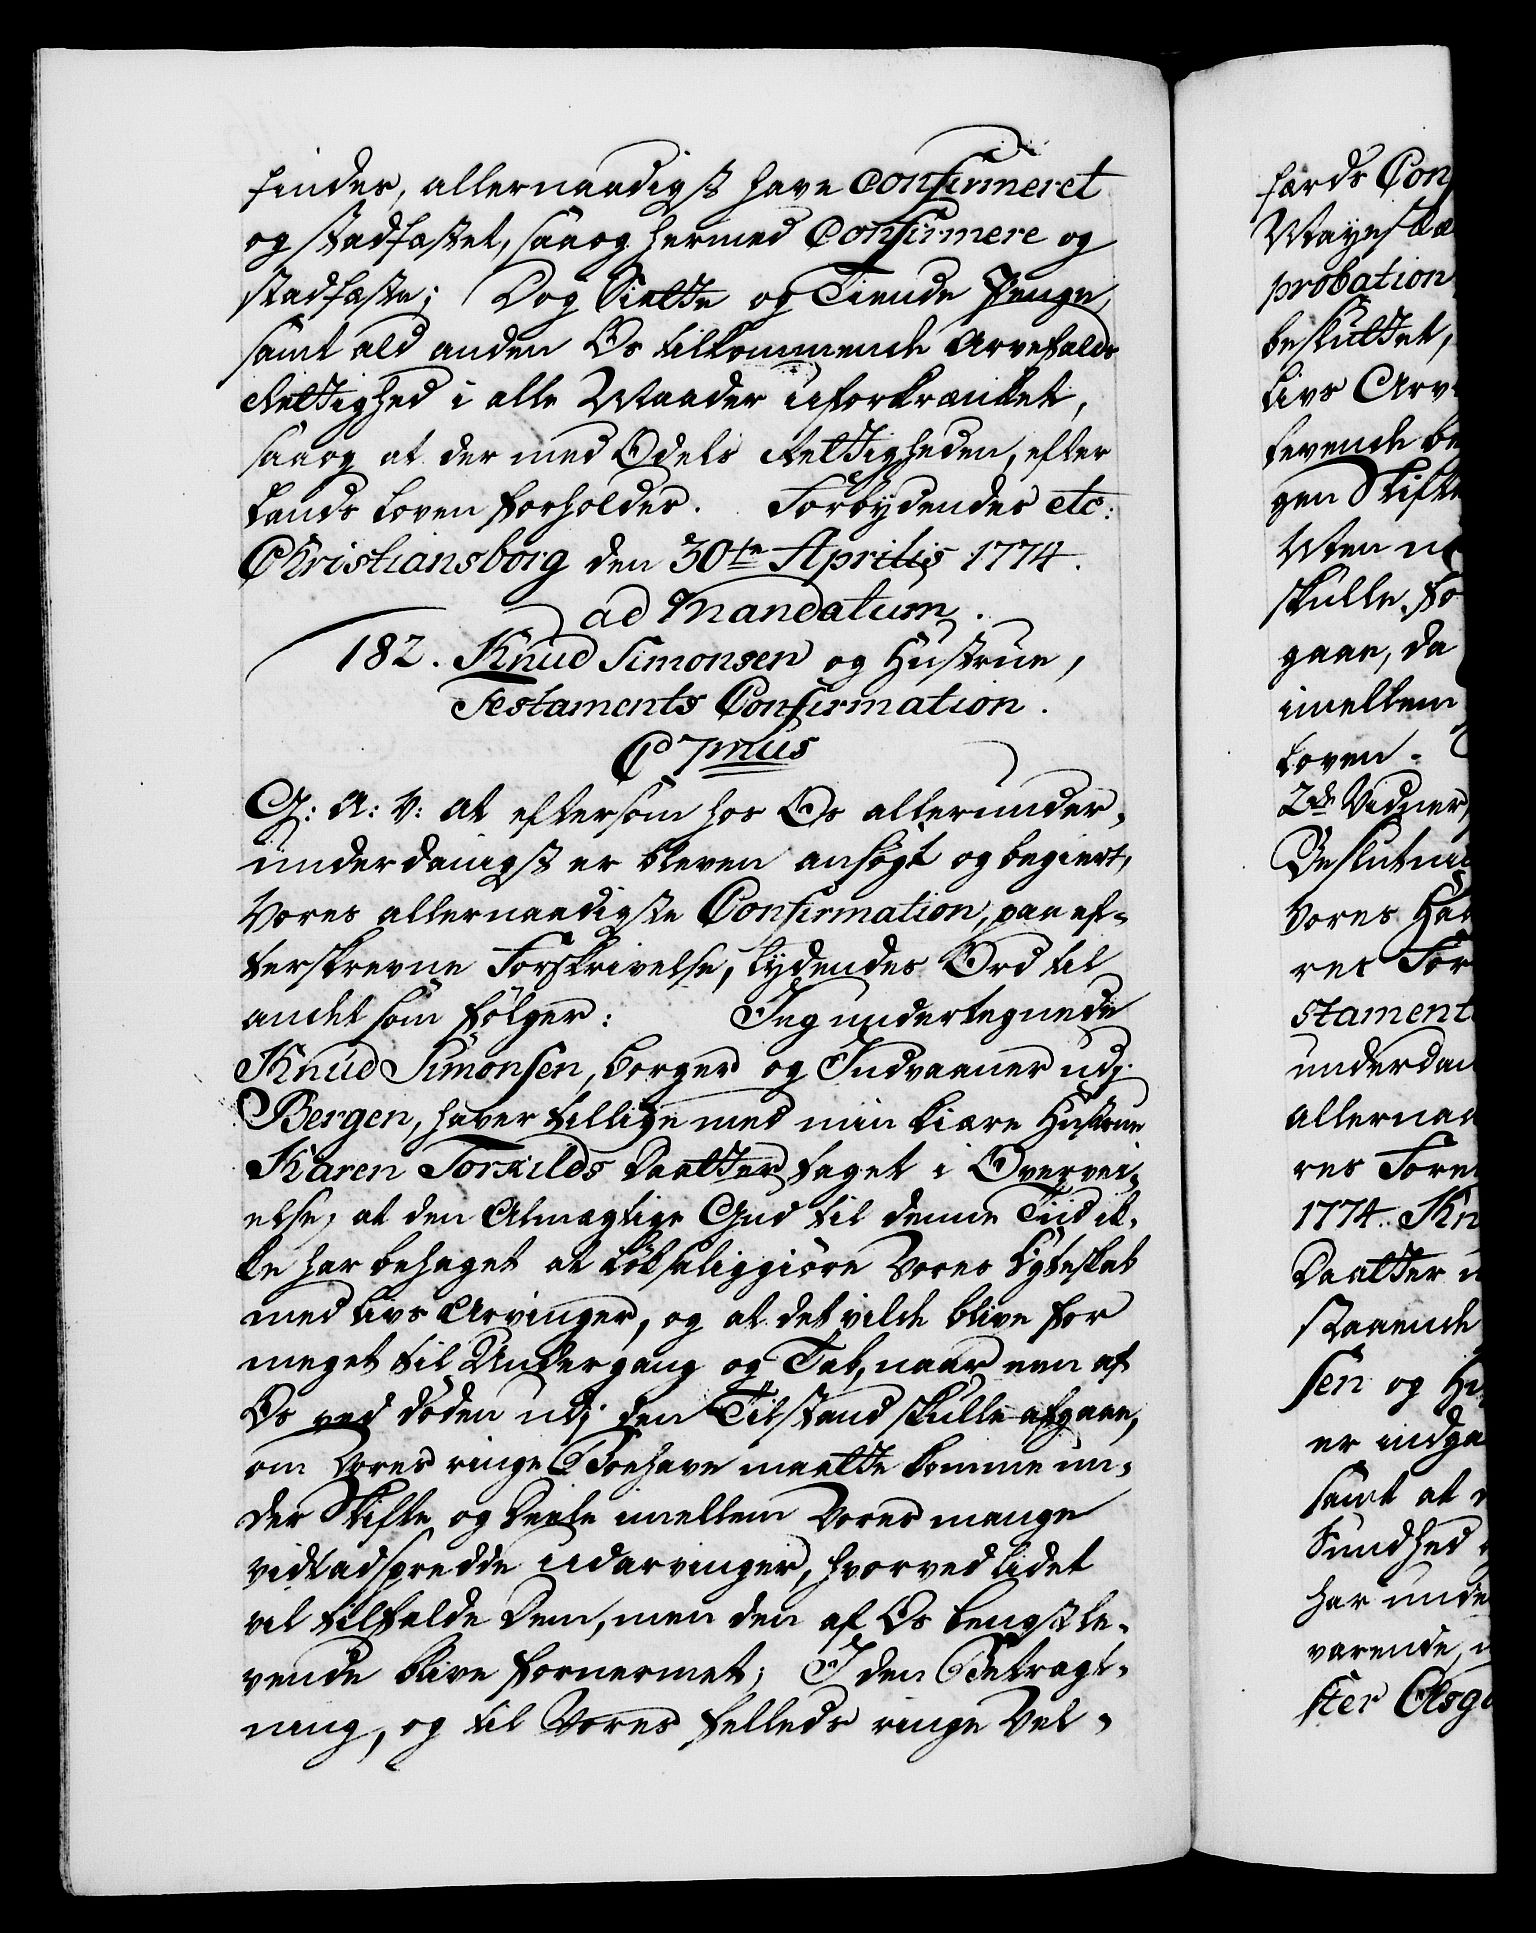 findes, allernaadigst have Confirmeret
og stadfæstet, saa og hermed Confirmere og
stadfæste; Dog Siette og Tiende Penge,
samt ald anden Os tilkommende Arvefalds
Rettighed i alle Maader uforkrænket,
saa og at der med Odels Rettigheden, efter
Lands Loven forholdes. Forbydendes etc:
Christiansborg den 30te Aprilis 1774.
ad Mandatum.
182. Knud Simonsen og Hustrue,
Testaments Confirmation.
C 7mus
G: A: V: at eftersom hos Os allerunder-
underdanigst er bleven ansøgt og begiert,
Vores allernaadigste Confirmation, paa ef-
terskrevne Forskrivelse, lydendes Ord til
andet som følger: Jeg undertegnede
Knud Simonsen, borger og Indvaaner udj
Bergen, haver tillige med min kiære Hustrue
Karen Torkilds Daatter taget i Overvei-
else, at den Almægtige Gud til denne Tiid ik-
ke har behaget at löksaliggiöre Vores Egteskab
med Livs Arvinger, og at det vilde blive for
meget til Undergang og Tab, naar een af
Os ved Døden udj den Tilstand skulle afgaae,
om Vores ringe Boehave maatte komme un-
der Skifte og Deele imellem Vores mange
vidtadspredde udarvinger, hvorved lidet
vil tilfalde Dem, men den af Os længstle-
vende blive fornermet; I den Betragt-
ning, og til Vores felleds ringe Vel-
færds Con
Mayestæ
probation
besluttet,
Livs Arv
levende be
gen Skifte
Men n
skulle fo
gaae, da
imellem
Loven.
2de Vidner
Beslutni
Vores Ha
res For
stament
underdan
allernaa
res Fore
1774. Kn
Daatter
staaende
sen og Hu
er indga
samt at
Sundhed
har unde
varende,
ster Olsg